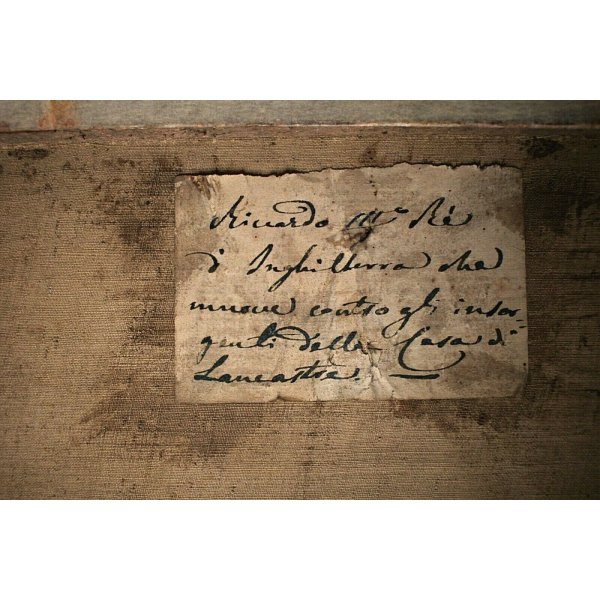 Riccardo III° Rè
d'Inghilterra che
muove contro gli insor-
genti della Casa di
Lancastre.